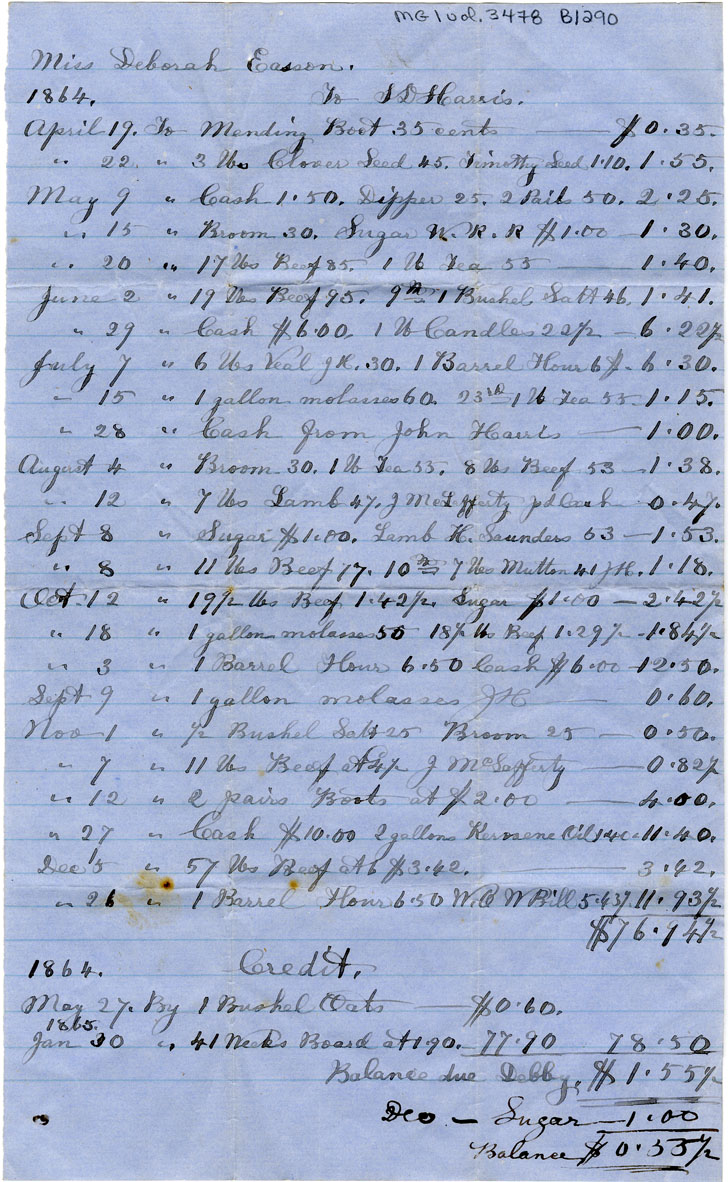 MG1 vol. 3478 B1290
Miss Deborah Easson.
1864. To J D Harris.
April 19. To Mending Boot 35 cents — $0.35.
" 22 " 3 lbs Clover Seed 45. Timothy Seed 1.10. 1.55.
May 9 " Cash 1.50. Dipper 25. 2 Pails 50. 2.25.
" 15 " Broom 30. Sugar W. R. R $1.00 — 1.30.
" 20 " 17 lbs Beef 85. 1 lb Tea 55 — 1.40.
June 2 " 19 lbs Beef 95. 9th 1 Bushel Salt 46. 1.41.
" 29 " Cash $6.00. 1 lb Candles 22½ — 6.22½
July 7 " 6 lbs Veal J H. 30. 1 Barrel Flour 6$ - 6.30.
" 15 " 1 gallon molasses 60. 23rd 1 lb Tea 55 - 1.15.
" 28 " Cash from John Harris — 1.00.
August 4 " Broom 30. 1 lb Tea 55. 8 lbs Beef 53 — 1.38.
" 12 " 7 lbs Lamb 47. J McLafferty pd Cash 0.47.
Sept 8 " Sugar $1.00. Lamb H. Saunders 53 — 1.53.
" 8 " 11 lbs Beef 77. 10th 7 lbs Mutton 41 J H. 1.18.
Oct. 12 " 19½ lbs Beef 1.42½. Sugar $1.00 — 2.42½
" 18 " 1 gallon molasses 55 18½ lbs Beef 1.29½ - 1.84½
" 3 " 1 Barrel Flour 6.50 Cash $6.00 - 12.50.
Sept 9 " 1 gallon molasses J H — 0.60.
Nov 1 " ½ Bushel Salt 25 Broom 25 — 0.50.
" 7 " 11 lbs Beef at 7½ J McLafferty — 0.82½
" 12 " 2 pairs Boots at $2.00 — 4.00.
" 27 " Cash $10.00 2 gallons Kerosene Oil 1.40 - 11.40.
Dec 5 " 57 lbs Beef at 6 $3.42. — 3.42.
" 26 " 1 Barrel Flour 6.50 W. C W Bill 5.43½. 11.93½
$76.94½
1864. Credit.
May 27. By 1 Bushel Oats — $0.60.
1865.
Jan 30 " 41 Weeks Board at 1.90. 77.90 78.50
Balance due Debby. $1.55½
Deo — Sugar — 1.00
Balance $0.55½